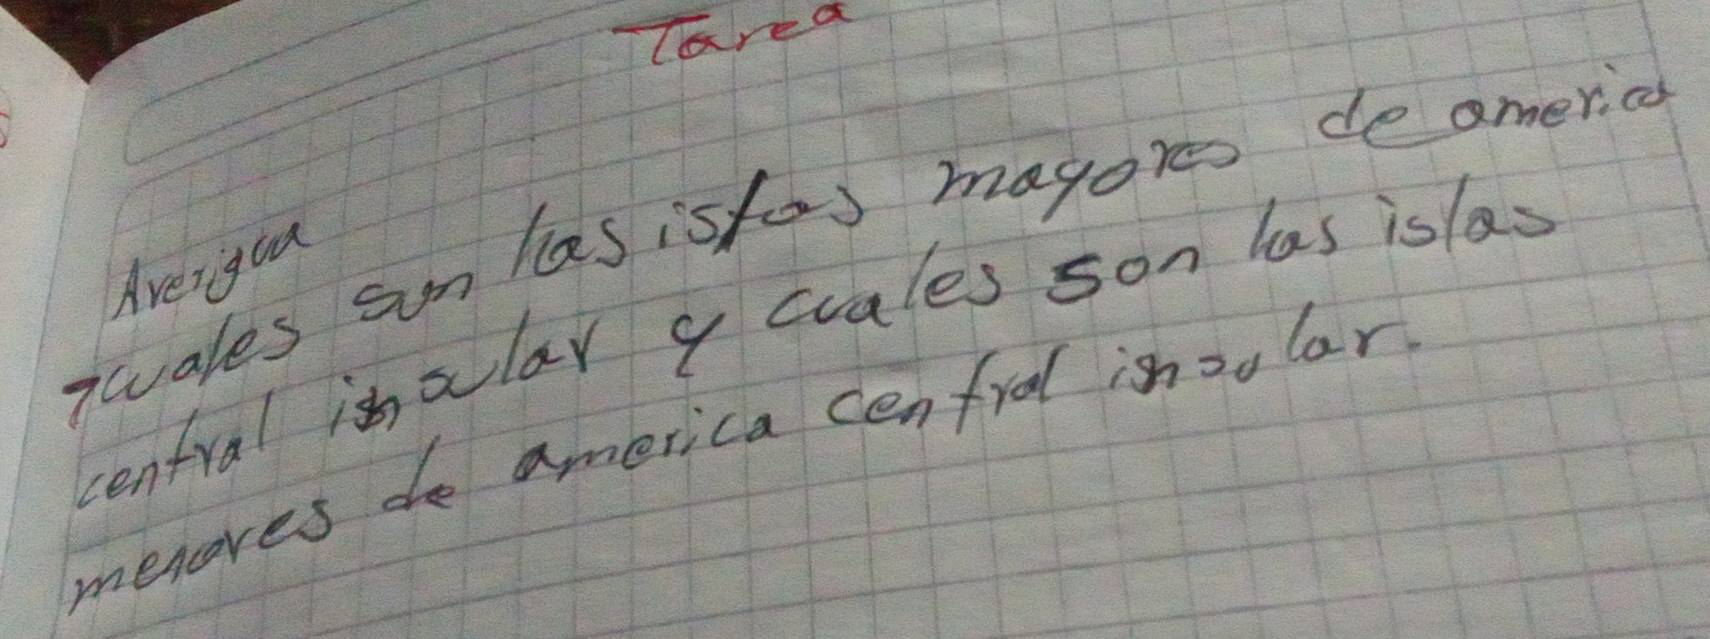 Tarea
Averigua
cuales son las islas mayores de america
central insular y cuales son las islas
menores de america central insular.